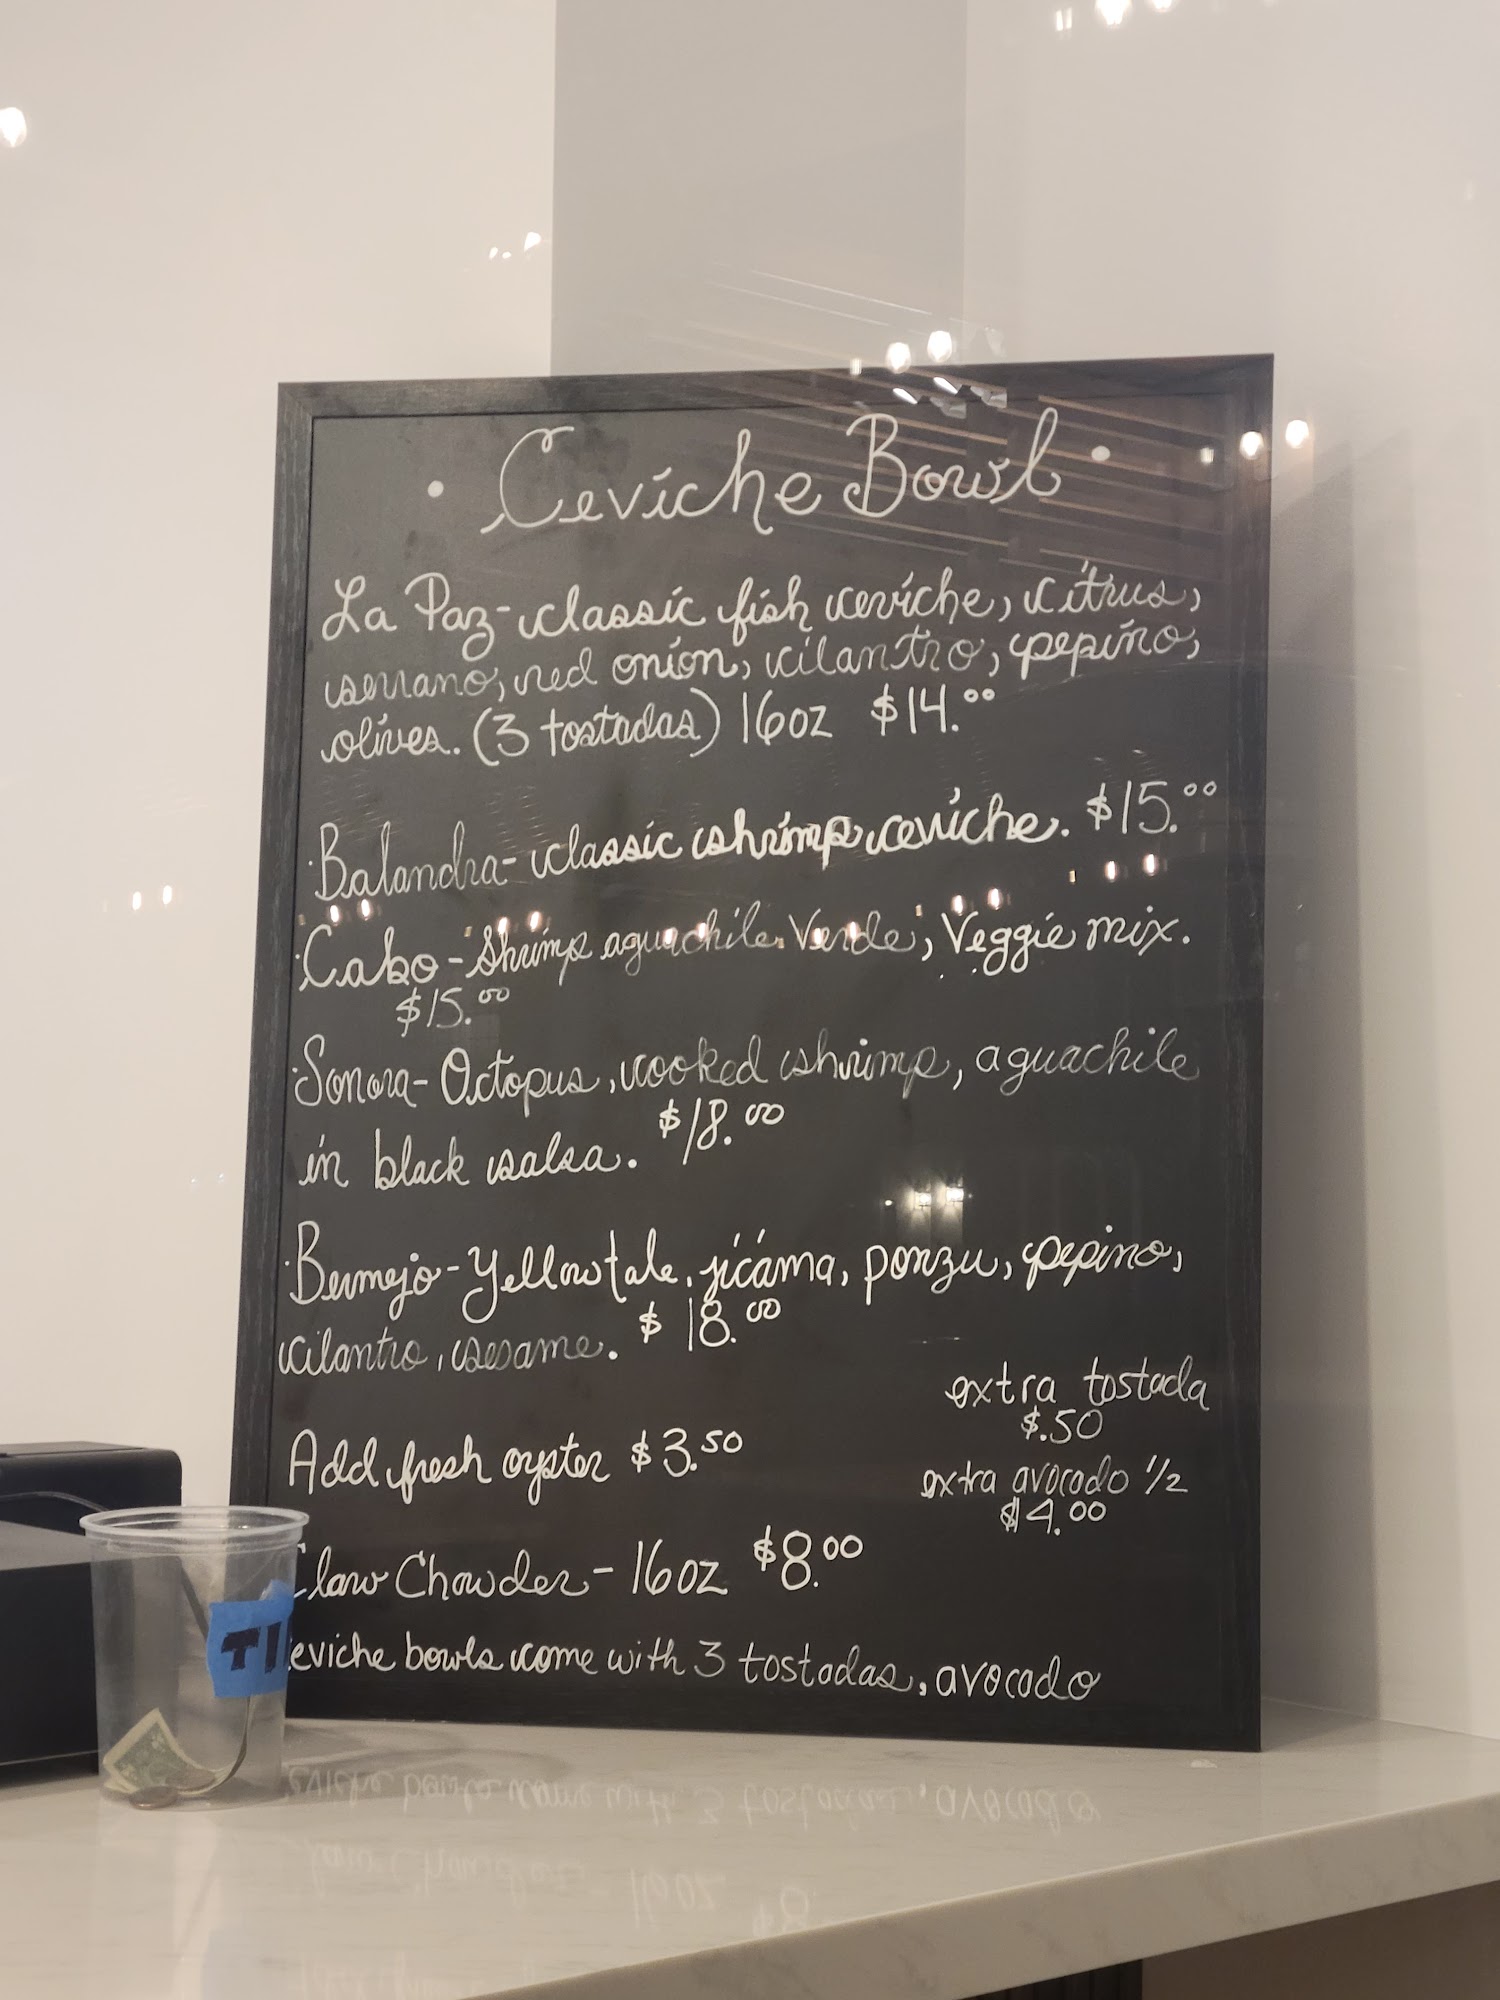 · Ceviche Bowl ·
La Paz - classic fish ceviche, citrus,
serrano, red onion, cilantro, pepino,
olives. (3 tostadas) 16oz $14.00
· Balandra - classic shrimp ceviche. $15.00
· Cabo - Shrimp aguachile Verde, Veggie mix.
$15.00
· Sonora - Octopus, cooked shrimp, aguachile
in black salsa. $18.00
· Bermejo - Yellowtale, jícama, ponzu, pepino,
cilantro, sesame. $18.00
extra tostada
$.50
Add fresh oyster $3.50
extra avocado 1/2
$4.00
Clam Chowder - 16oz $8.00
TI
eviche bowls come with 3 tostadas, avocado